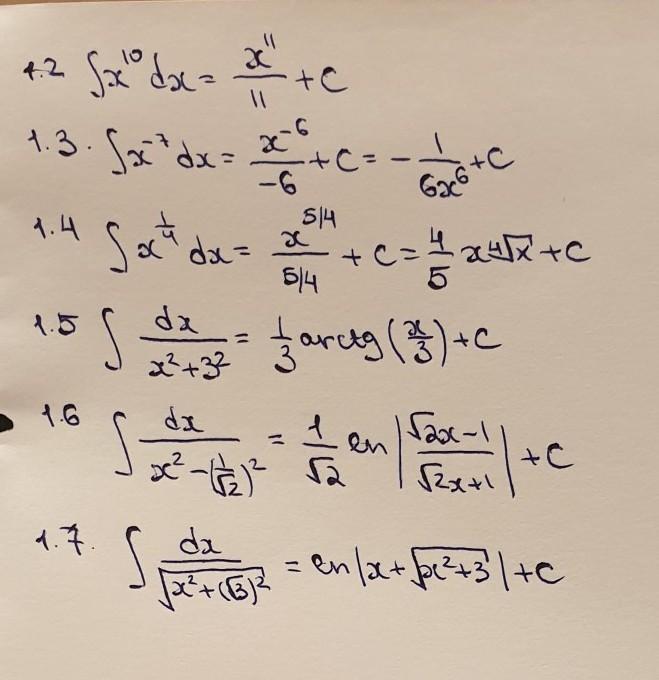 1.2 ∫x¹⁰ dx = x¹¹/11 + C
1.3. ∫x⁻⁷ dx = x⁻⁶/-6 + C = - 1/6x⁶ + C
1.4 ∫ x^(1/4) dx = x^(5/4)/(5/4) + C = 4/5 x ∜x + C
1.5 ∫ dx/(x²+3²) = 1/3 arctg (x/3) + C
1.6 ∫ dx/(x² - (1/√2)²) = 1/√2 ln |(√2x-1)/(√2x+1)| + C
1.7. ∫ dx/√(x²+(√3)²) = ln |x+√(x²+3)| + C